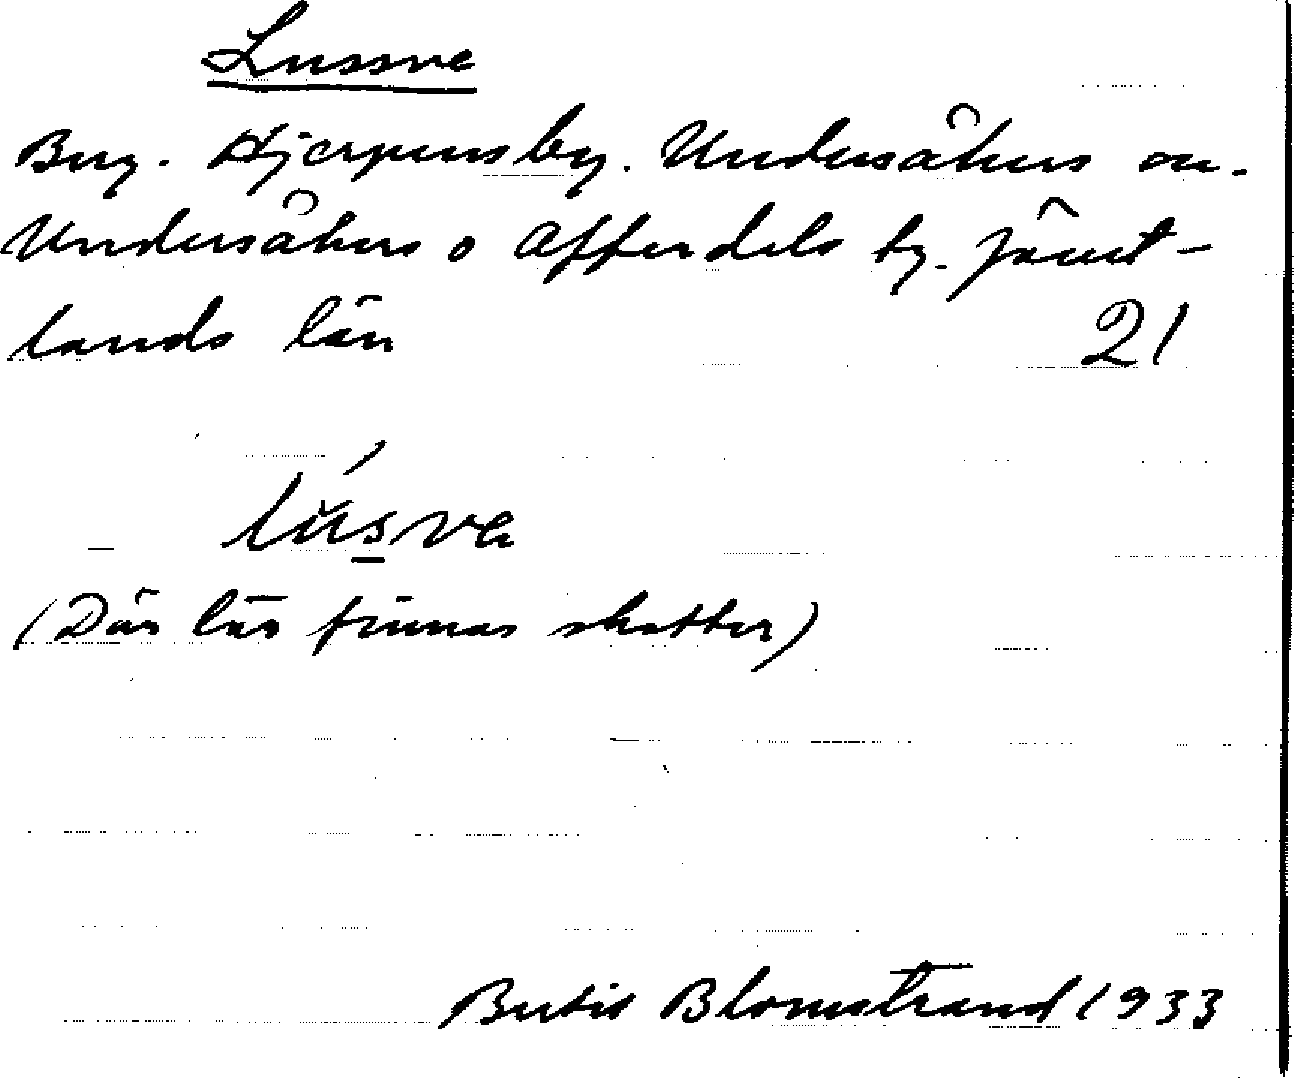 Lussve
Berg. Hjerpens by. Undersåkers sn.
Undersåkers o Offerdals tg. Jämt-
lands län 21
lúsve
(Där lär finnas skatter)
Bertil Blomstrand 1933